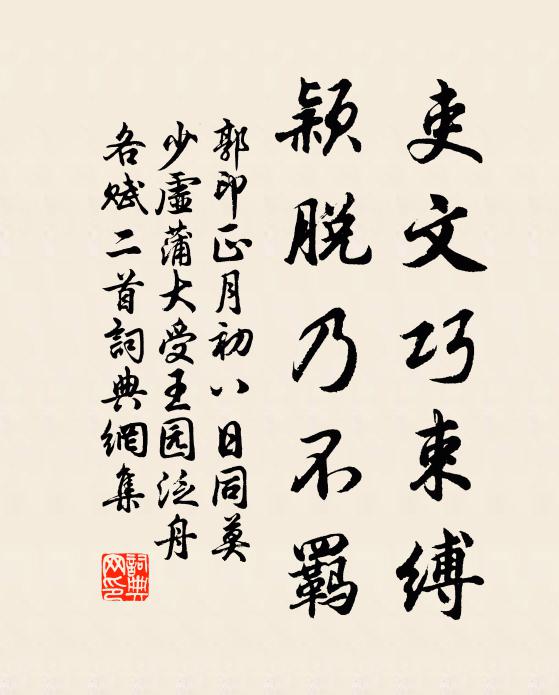 吏文巧束缚
颖脱乃不羁
郭印正月初八日同莫
少虚蒲大受王园泛舟
各赋二首詞典網集
詞典网印